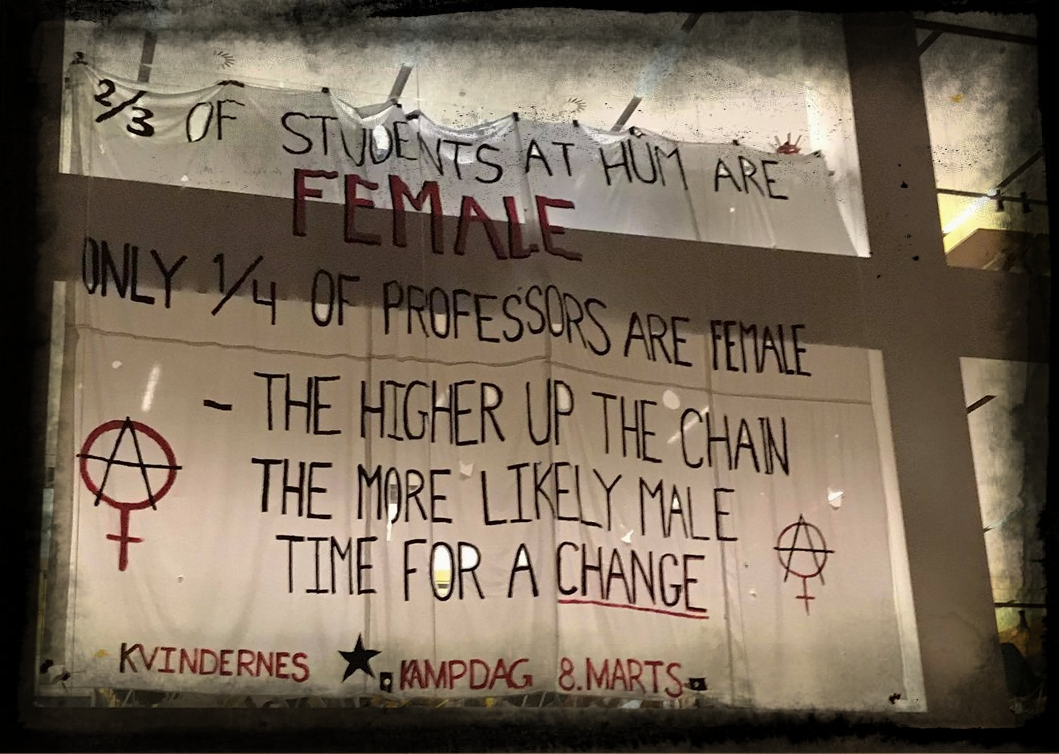 2/3 OF STUDENTS AT HUM ARE
FEMALE
ONLY 1/4 OF PROFESSORS ARE FEMALE
- THE HIGHER UP THE CHAIN
THE MORE LIKELY MALE
TIME FOR A CHANGE
KVINDERNES KAMPDAG 8. MARTS